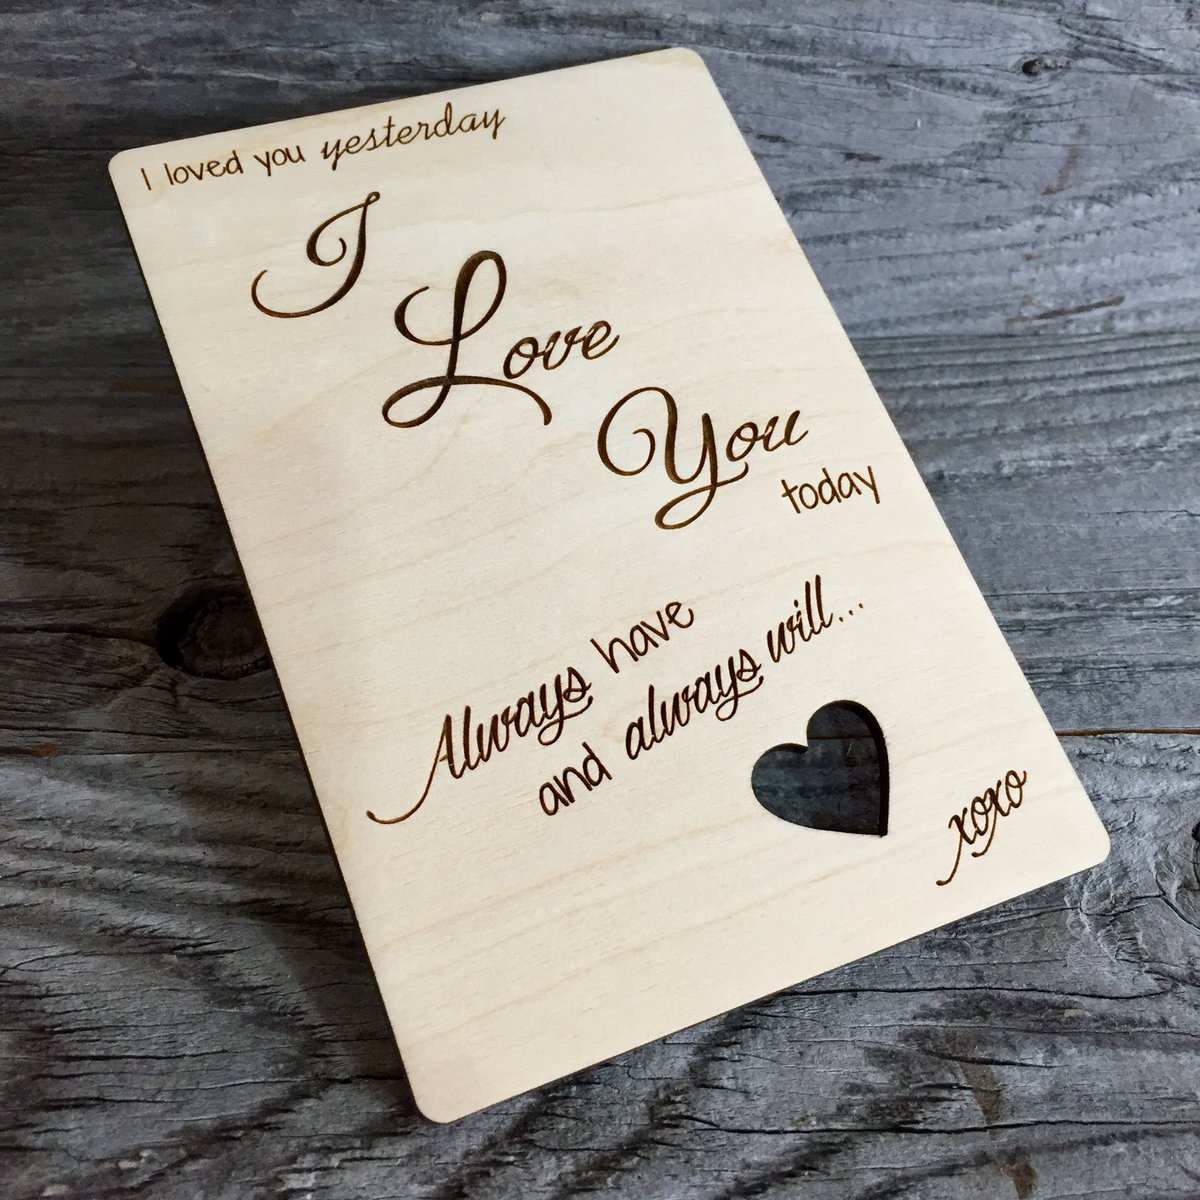 I loved you yesterday
I
Love
You
today
Always have
and always will...
xoxo